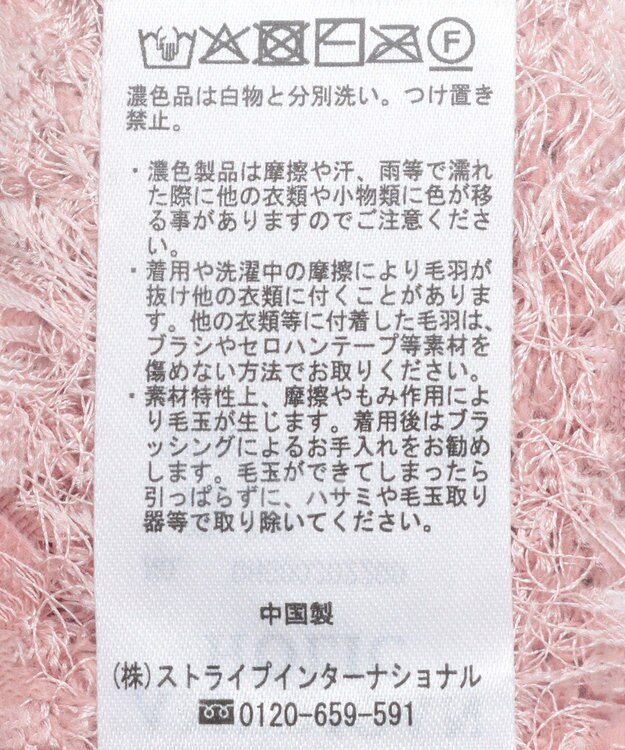 F
濃色品は白物と分別洗い。つけ置き
禁止。
・濃色製品は摩擦や汗、雨等で濡れ
た際に他の衣類や小物類に色が移
る事がありますのでご注意くださ
い。
・着用や洗濯中の摩擦により毛羽が
抜け他の衣類に付くことがありま
す。他の衣類等に付着した毛羽は、
ブラシやセロハンテープ等素材を
傷めない方法でお取りください。
・素材特性上、摩擦やもみ作用によ
り毛玉が生じます。着用後はブラ
ッシングによるお手入れをお勧め
します。毛玉ができてしまったら
引っぱらずに、ハサミや毛玉取り
器等で取り除いてください。
中国製
(株)ストライプインターナショナル
0120-659-591